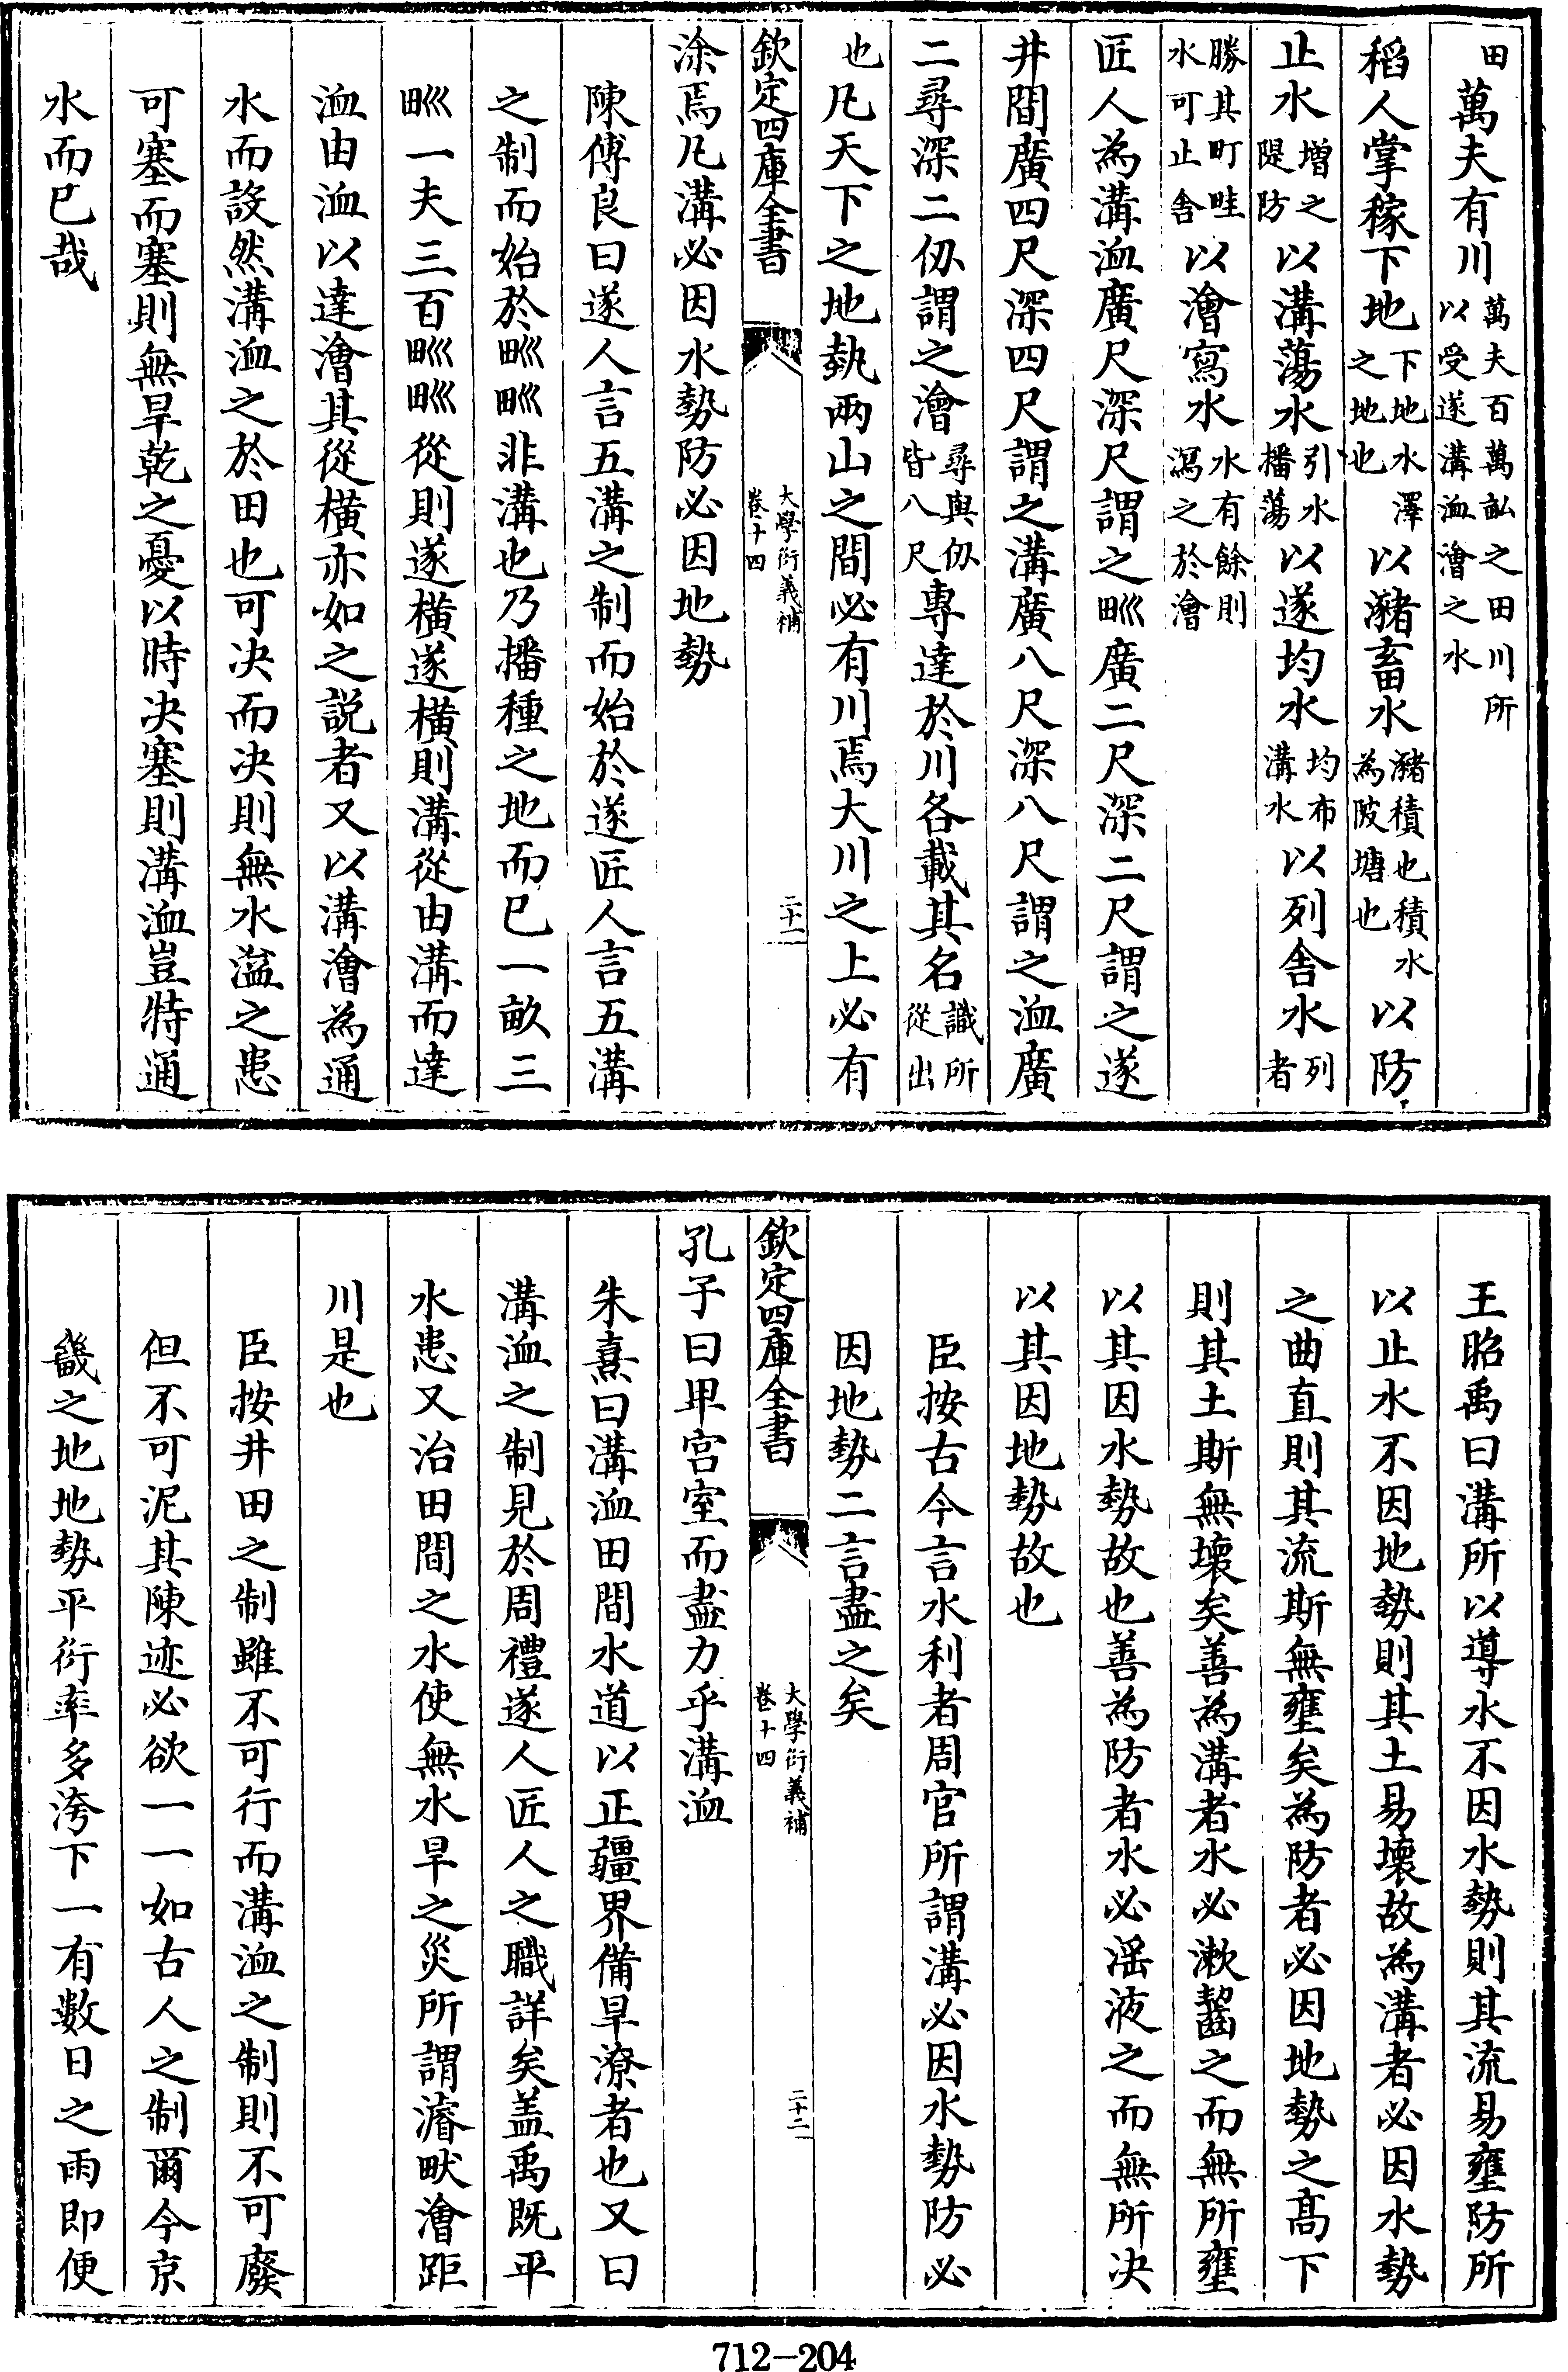 田萬夫有川萬夫百萬畝之田川所以受遂溝洫澮之水
稻人掌稼下地下地水澤之地也以瀦畜水瀦積也積水為陂塘也以防
止水增之隄防以溝蕩水引水播蕩以遂均水均布溝水以列舍水列者
勝其町畦水可止舍以澮寫水水有餘則瀉之於澮
匠人為溝洫廣尺深尺謂之𤰕廣二尺深二尺謂之遂
井間廣四尺深四尺謂之溝廣八尺深八尺謂之洫廣
二尋深二仭謂之澮尋與仭皆八尺專達於川各載其名識所從出
也凡天下之地埶兩山之間必有川焉大川之上必有
欽定四庫全書 大學衍義補 卷十四 二十一
涂焉凡溝必因水勢防必因地勢
陳傅良曰遂人言五溝之制而始於遂匠人言五溝
之制而始於𤰕𤰕非溝也乃播種之地而已一畝三
𤰕一夫三百𤰕𤰕從則遂橫遂橫則溝從由溝而達
洫由洫以達澮其從橫亦如之說者又以溝澮為通
水而設然溝洫之於田也可決而決則無水溢之患
可塞而塞則無旱乾之憂以時決塞則溝洫豈特通
水而已哉
王昭禹曰溝所以導水不因水勢則其流易壅防所
以止水不因地勢則其土易壞故為溝者必因水勢
之曲直則其流斯無壅矣為防者必因地勢之高下
則其土斯無壞矣善為溝者水必漱齧之而無所壅
以其因水勢故也善為防者水必淫液之而無所決
以其因地勢故也
臣按古今言水利者周官所謂溝必因水勢防必
因地勢二言盡之矣
欽定四庫全書 大學衍義補 卷十四 二十二
孔子曰卑宮室而盡力乎溝洫
朱熹曰溝洫田間水道以正疆界備旱潦者也又曰
溝洫之制見於周禮遂人匠人之職詳矣蓋禹既平
水患又治田間之水使無水旱之災所謂濬畎澮距
川是也
臣按井田之制雖不可行而溝洫之制則不可廢
但不可泥其陳迹必欲一一如古人之制爾今京
畿之地地勢平衍率多洿下一有數日之雨即便
712-204